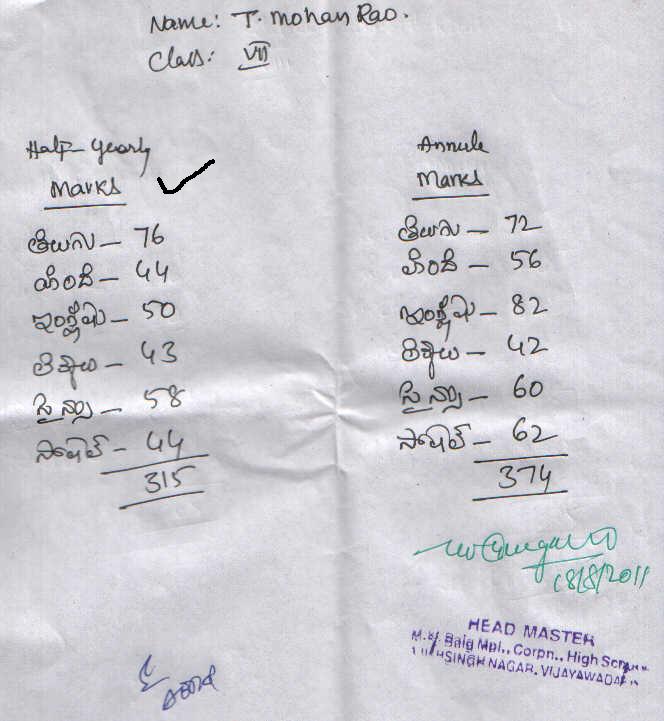 Name: T. Mohan Rao.
Class: VII
Half-Yearly
Marks
తెలుగు - 76
హిందీ - 44
ఇంగ్లీషు - 50
లెక్కలు - 43
సైన్సు - 58
సోషల్ - 44
315
Annule
Marks
తెలుగు - 72
హిందీ - 56
ఇంగ్లీషు - 82
లెక్కలు - 42
సైన్సు - 60
సోషల్ - 62
374
18/8/2011
HEAD MASTER
Baig Mpl., Corpn., High
SINGH NAGAR, VIJAYAWADA